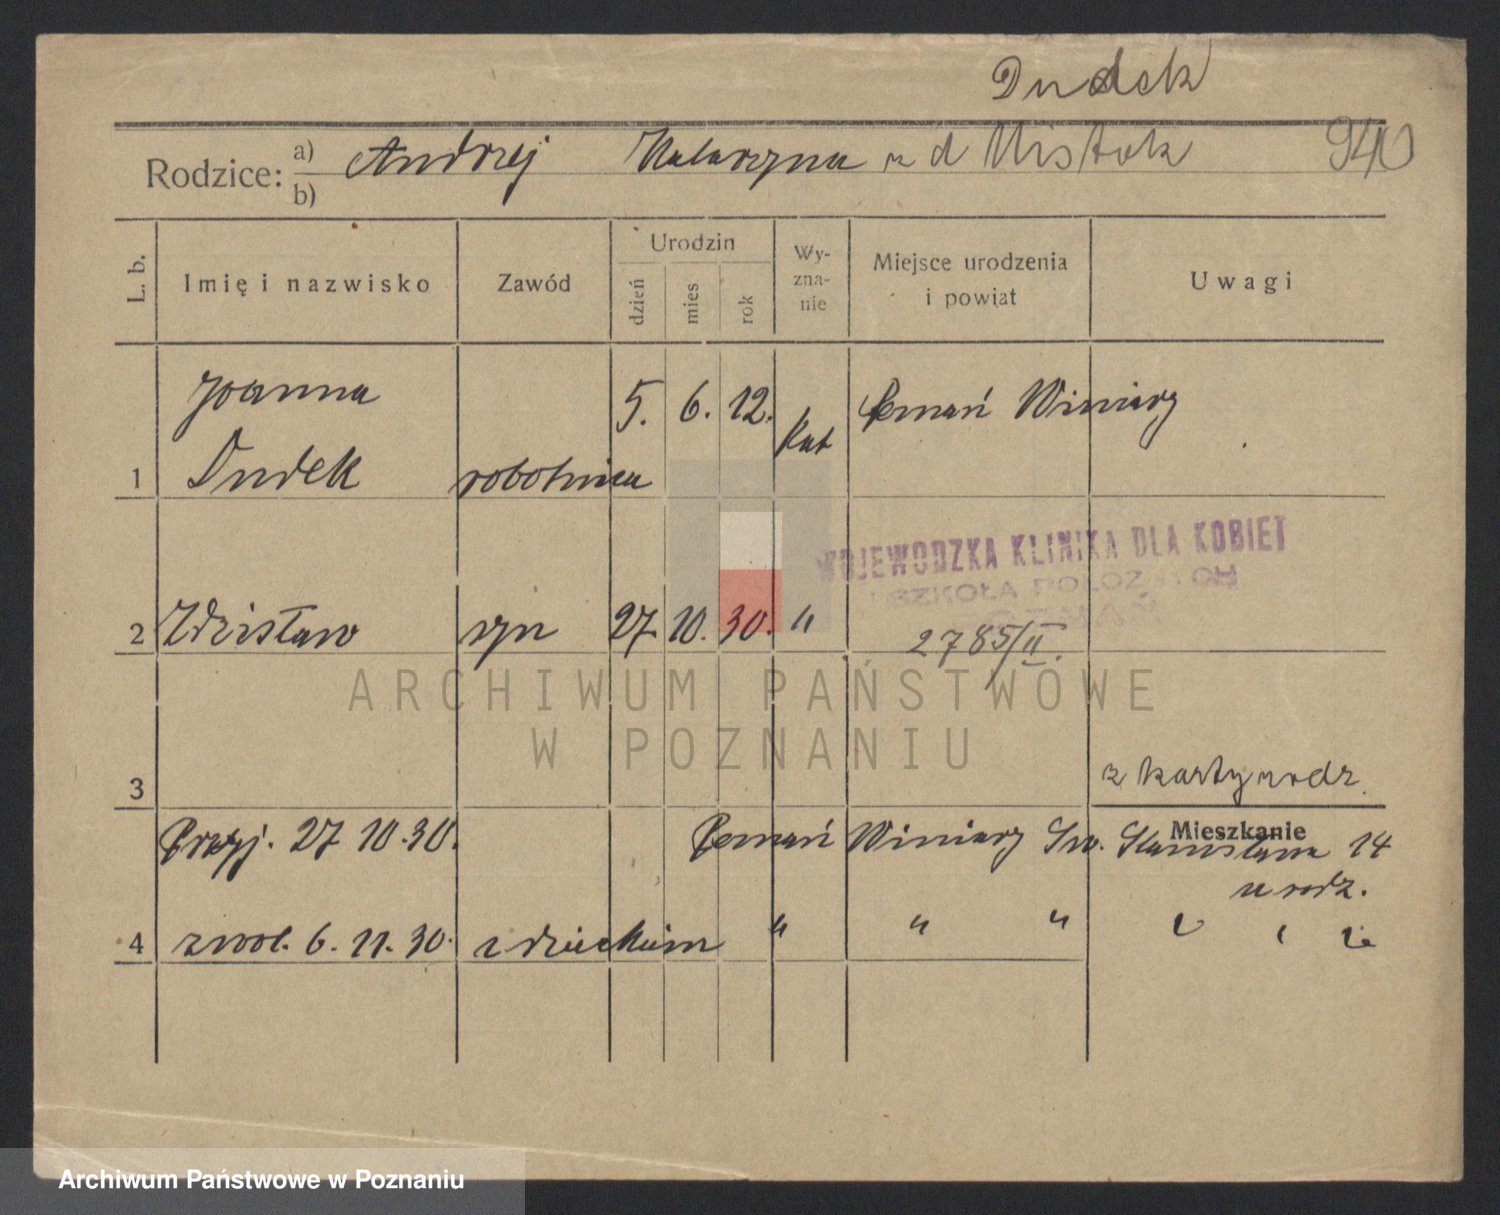 Dudek
Rodzice: a) Andrzej Katarzyna z d Mistak 940
b)
L. b. Imię i nazwisko Zawód Urodzin dzień mies rok Wy-zna-nie Miejsce urodzenia i powiat Uwagi
Joanna 5. 6. 12. Kat Poznań Winiary
1 Dudek robotnica
WOJEWODZKA KLINIKA DLA KOBIET
SZKOŁA POŁOŻNYCH
POZNAŃ
2 Zdzisław syn 27. 10. 30. "
2785/II.
ARCHIWUM PAŃSTWOWE
W POZNANIU
3 z karty rodz.
Mieszkanie
Przyj. 27 10. 30. Poznań Winiary Św. Stanisława 14
u rodz.
4 zwol. 6. 11. 30. z dzieckiem " " " " " "
Archiwum Państwowe w Poznaniu